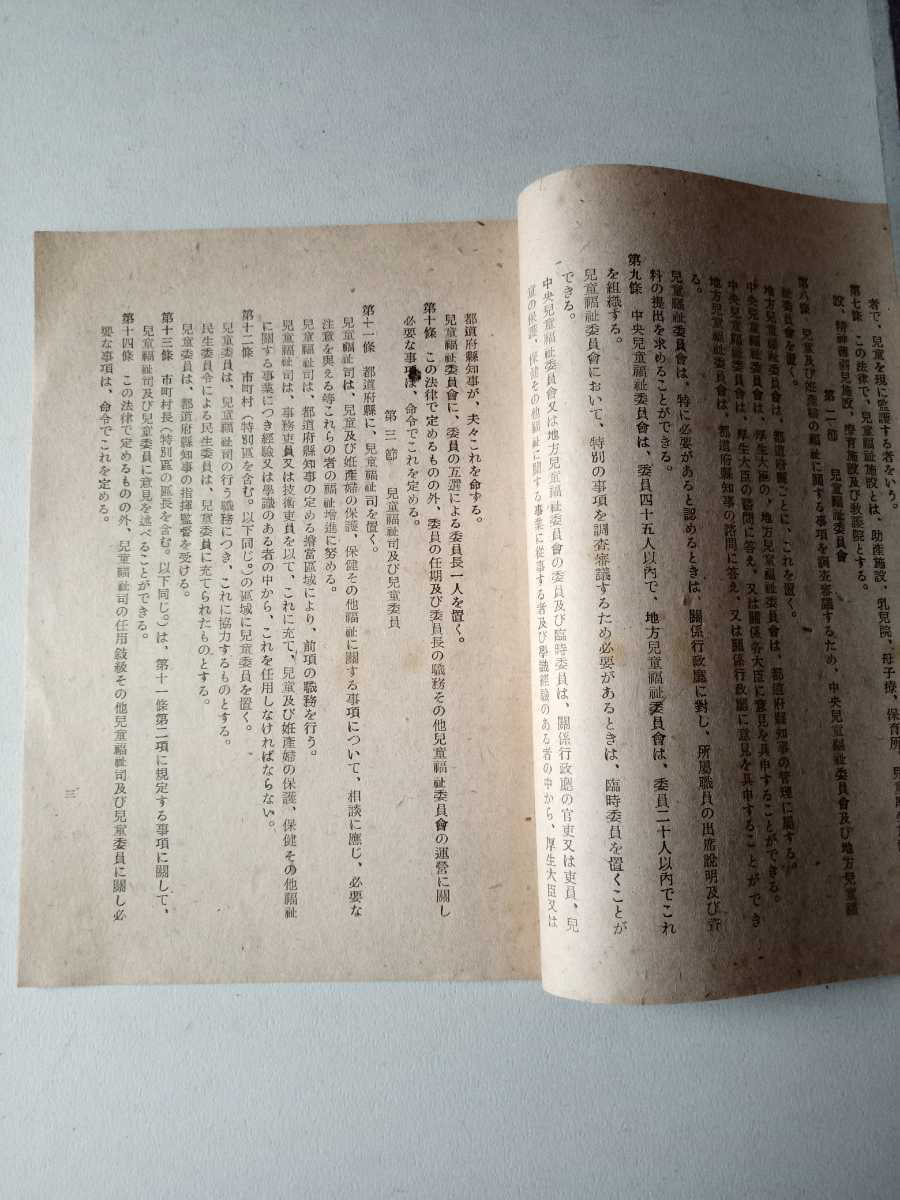 者で、兒童を現に監護する者をいう。
第七條　この法律で、兒童福祉施設とは、助產施設、乳兒院、母子寮、保育所、
設、精神薄弱兒施設、療育施設及び敎護院とする。
第二節　兒童福祉委員會
第八條　兒童及び姙產婦の福祉に關する事項を調査審議するため、中央兒童福祉委員會及び地方兒童福
祉委員會を置く。
地方兒童福祉委員會は、都道府縣ごとに、これを置く。
中央兒童福祉委員會は、厚生大臣の、地方兒童福祉委員會は、都道府縣知事の管理に屬する。
中央兒童福祉委員會は、厚生大臣の諮問に答え、又は關係各大臣に意見を具申することができる。
地方兒童福祉委員會は、都道府縣知事の諮問に答え、又は關係行政廳に意見を具申することができ
る。
兒童福祉委員會は、特に必要があると認めるときは、關係行政廳に對し、所屬職員の出席說明及び資
料の提出を求めることができる。
第九條　中央兒童福祉委員會は、委員四十五人以內で、地方兒童福祉委員會は、委員二十人以內でこれ
を組織する。
兒童福祉委員會において、特別の事項を調査審議するため必要があるときは、臨時委員を置くことが
できる。
中央兒童福祉委員會又は地方兒童福祉委員會の委員及び臨時委員は、關係行政廳の官吏又は吏員、兒
童の保護、保健その他福祉に關する事業に從事する者及び學識經驗のある者の中から、厚生大臣又は
都道府縣知事が、夫々これを命ずる。
兒童福祉委員會に、委員の互選による委員長一人を置く。
第十條　この法律で定めるものの外、委員の任期及び委員長の職務その他兒童福祉委員會の運營に關し
必要な事項は、命令でこれを定める。
第三節　兒童福祉司及び兒童委員
第十一條　都道府縣に、兒童福祉司を置く。
兒童福祉司は、兒童及び姙產婦の保護、保健その他福祉に關する事項について、相談に應じ、必要な
注意を與える等これらの者の福祉增進に努める。
兒童福祉司は、都道府縣知事の定める擔當區域により、前項の職務を行う。
兒童福祉司は、事務吏員又は技術吏員を以て、これに充て、兒童及び姙產婦の保護、保健その他福祉
に關する事業につき經驗又は學識のある者の中から、これを任用しなければならない。
第十二條　市町村（特別區を含む。以下同じ。）の區域に兒童委員を置く。
兒童委員は、兒童福祉司の行う職務につき、これに協力するものとする。
民生委員令による民生委員は、兒童委員に充てられたものとする。
兒童委員は、都道府縣知事の指揮監督を受ける。
第十三條　市町村長（特別區の區長を含む。以下同じ。）は、第十一條第二項に規定する事項に關して、
兒童福祉司及び兒童委員に意見を述べることができる。
第十四條　この法律で定めるものの外、兒童福祉司の任用敍級その他兒童福祉司及び兒童委員に關し必
要な事項は、命令でこれを定める。
三